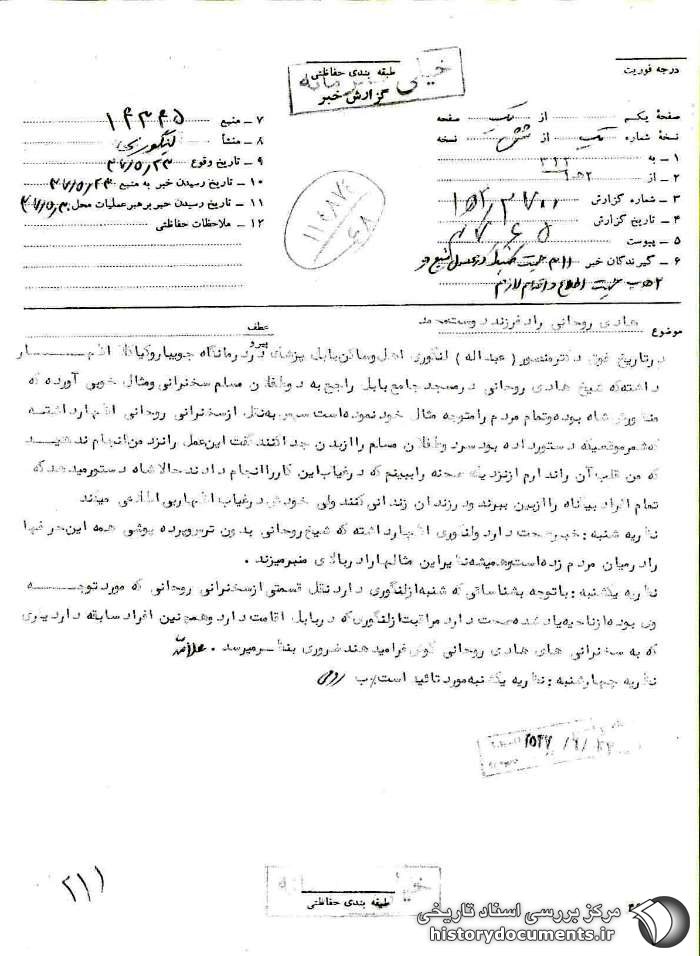 درجه فوریت
طبقه بندی حفاظتی
خیلی محرمانه
گزارش خبر
صفحهٔ یکم از یک صفحه
نسخهٔ شماره یک از شش نسخه
۱ – به ۳۱۲
۲ – از
۳ – شماره گزارش
۴ – تاریخ گزارش
۵ – پیوست
۶ – گیرندگان خبر
جهت اطلاع و اقدام لازم
۷ – منبع ۱۴۳۴۵
۸ – منشأ لنگوری
۹ – تاریخ وقوع ۳۷/۵/۲۳
۱۰ – تاریخ رسیدن خبر به منبع ۳۷/۵/۲۳
۱۱ – تاریخ رسیدن خبر برهبر عملیات محل
۱۲ – ملاحظات حفاظتی
موضوع هادی روحانی راد فرزند دوست محمد
عطف
پیرو
درتاریخ فوق دکترمنصور (عبداله) لنگوری اهل وساکن بابل پزشک درمانگاه جویبار وکیاکلا اظهار
داشته که شیخ هادی روحانی درمسجد جامع بابل راجع به دوطفلان مسلم سخنرانی ومثال خوبی آورده که
منظورش شاه بوده وتمام مردم را متوجه مثال خود نموده است سپس به نقل ازسخنرانی روحانی اظهارداشته
که شمر موقعیکه دستورداده بود سردوطفلان مسلم را ازبدن جدا کنند گفت این عمل را نزد من انجام ندهید
که من قلب آن را ندارم از نزدیک صحنه را ببینم که درغیاب این کار را انجام دادند حالا شاه دستورمیدهد که
تمام افراد بیگناه را ازبین ببرند ودرزندان زندانی کنند ولی خودش درغیاب اظهاربی اطلاعی میکند
نظریه شنبه : خبرصحت دارد ولنگوری اظهارداشته که شیخ روحانی بدون ترس وپرده پوشی همه این حرفها
را درمیان مردم زده است وهمیشه نظیراین مثالها را دربالای منبرمیزند .
نظریه یکشنبه : باتوجه بشناسائی که شنبه ازلنگوری دارد نقل قسمتی ازسخنرانی روحانی که مورد توجه
وی بوده ازناحیه یاد شده صحت دارد مراقبت ازلنگوری که دربابل اقامت دارد وهمچنین افراد سابقه دار دیگری
که به سخنرانی های هادی روحانی گوش فرامیدهند ضروری بنظرمیرسد .
نظریه چهارشنبه : نظریه یکشنبه مورد تائید است .
۲۱۱
طبقه بندی حفاظتی
مرکز بررسی اسناد تاریخی
historydocuments.ir